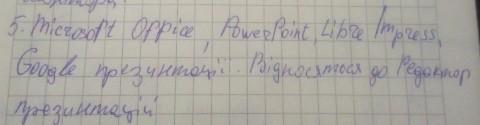 5. Microsoft Office, PowerPoint, Libre Impress,
Google презинтації. Відносяться до Редактор
презинтацій